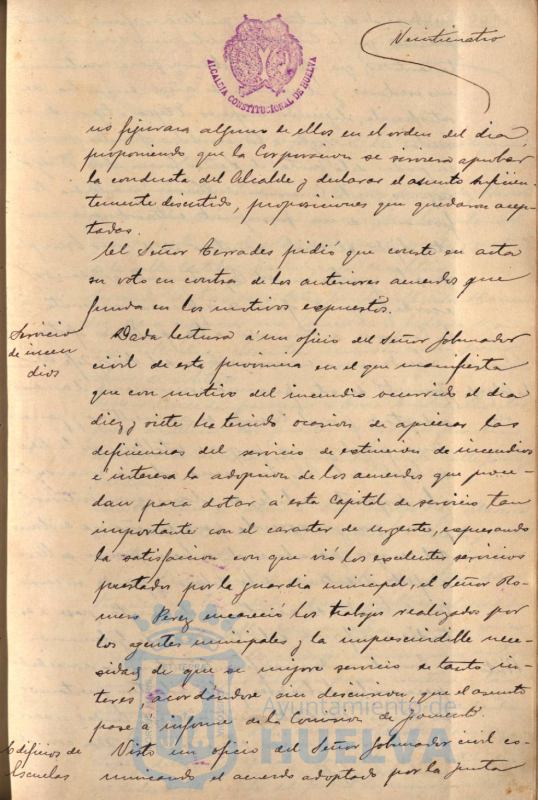 Veinticuatro
ALCALDIA CONSTITUCIONAL DE HUELVA
no figurara alguno de ellos en el orden del dia,
proponiendo que la Corporacion se sirviera aprobar
la conducta del Alcalde y declarar el asunto suficien-
temente discutido, proposiciones que quedaron acep-
tadas.
El Señor Terrades pidió que conste en acta
su voto en contra de los anteriores acuerdos que
funda en los motivos expuestos.
Servicio
de incen
dios
Dada lectura á un oficio del Señor Gobernador
civil de esta provincia en el que manifiesta
que con motivo del incendio ocurrido el dia
diez y siete ha tenido ocasion de apreciar las
deficiencias del servicio de estincion de incendios
é interesa la adopcion de los acuerdos que proce-
dan para dotar á esta Capital de servicio tan
importante con el caracter de urgente, expresando
la satisfaccion con que vió los excelentes servicios
prestados por la guardia municipal, el Señor Ro-
mero Perez encareció los trabajos realizados por
los agentes municipales y la imprescindible nece-
sidad de que se mejore servicio de tanto in-
terés acordandose sin discusion, que el asunto
pase á informe de la Comision de fomento.
Edificios de
Escuelas
Visto un oficio del Señor Gobernador civil co-
municando el acuerdo adoptado por la Junta
Ayuntamiento de
HUELVA